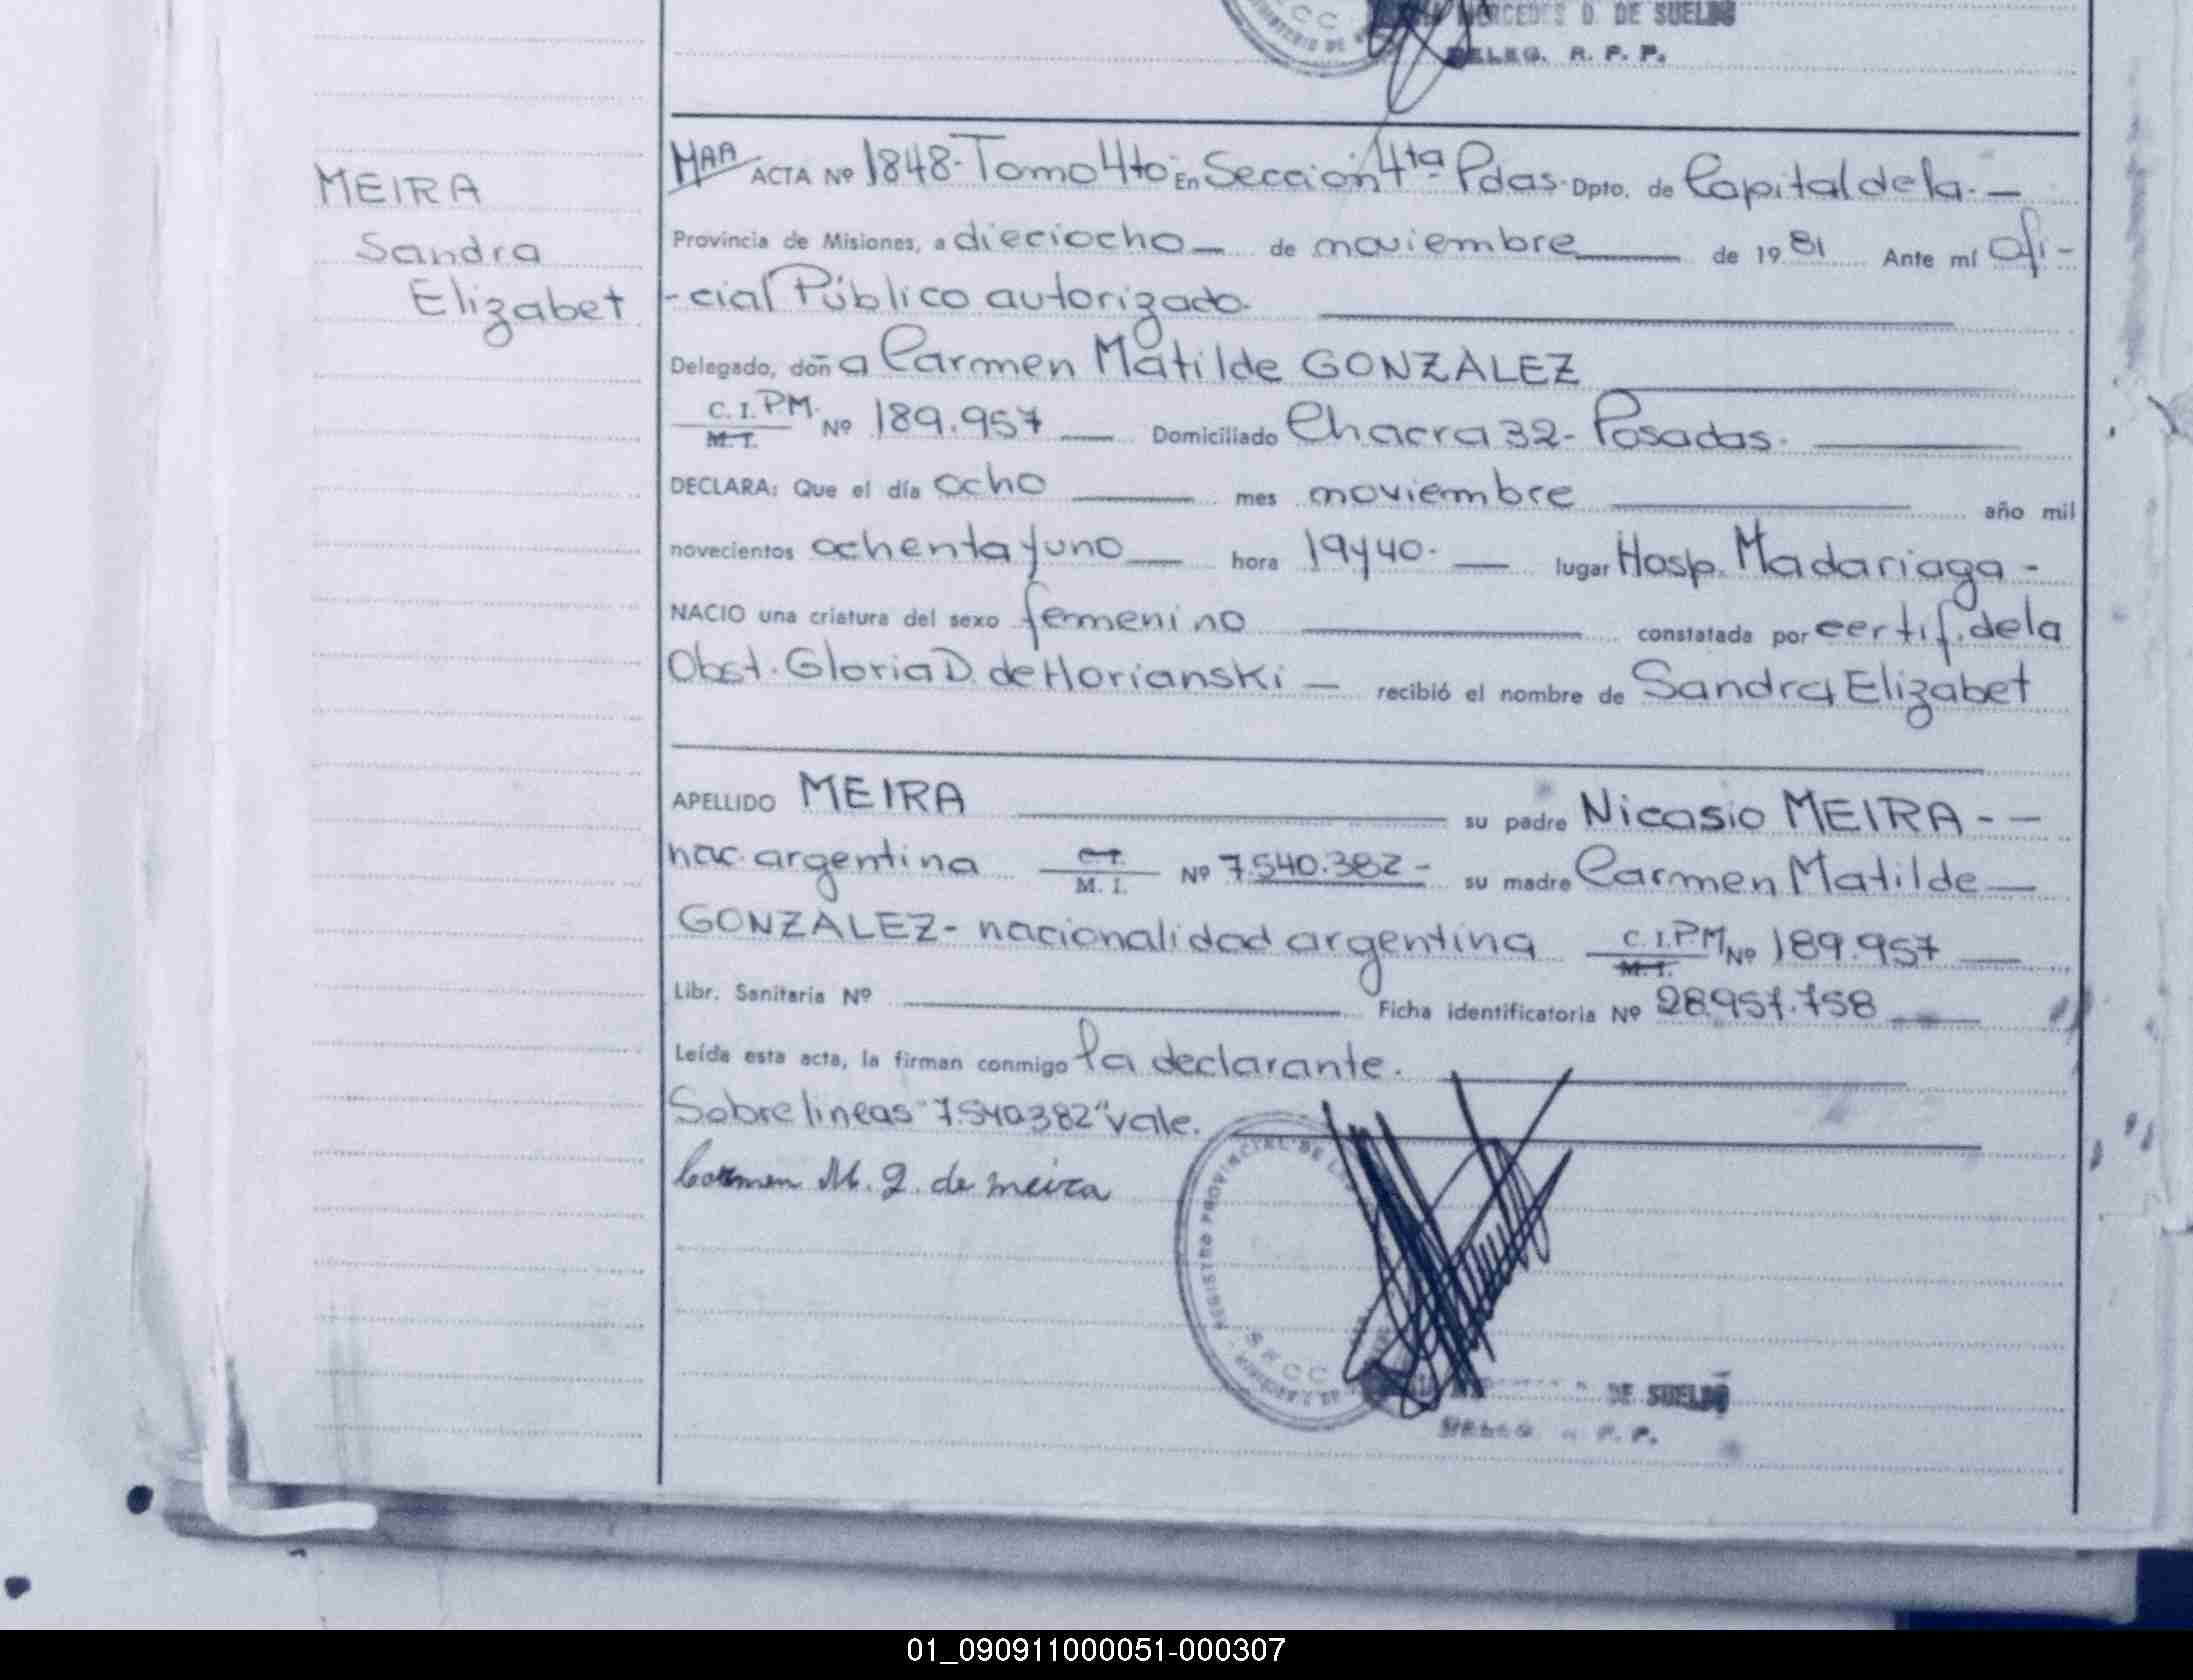 MERCEDES D. DE SUELDO
DELEG. R. P. P.
MEIRA
Sandra
Elizabet
MAA ACTA Nº 1848- Tomo 4to En Sección 4ta Pdas. Dpto. de Capital de la.-
Provincia de Misiones, a dieciocho — de noviembre — de 1981 Ante mí ofi-
-cial Público autorizado.
Delegado, doña Carmen Matilde GONZALEZ
C. I. P.M. Nº 189.957 — Domiciliado Chacra 32- Posadas.
M. I.
DECLARA: Que el día ocho — mes noviembre — año mil
novecientos ochenta y uno — hora 19y40. — lugar Hosp. Madariaga -
NACIO una criatura del sexo femenino — constatada por certif. de la
Obst. Gloria D. de Horianski — recibió el nombre de Sandra Elizabet
APELLIDO MEIRA — su padre Nicasio MEIRA - -
nac. argentina C. I. Nº 7.540.382 - su madre Carmen Matilde —
M. I.
GONZALEZ- nacionalidad argentina C. I. P.M. Nº 189.957 —
M. I.
Libr. Sanitaria Nº — Ficha identificatoria Nº 28.957.758 —
Leída esta acta, la firman conmigo la declarante.
Sobre lineas "7.540.382" vale.
Carmen M. G. de meira
REGISTRO PROVINCIAL DE LAS
DE SUELDO
P. P.
01_090911000051-000307